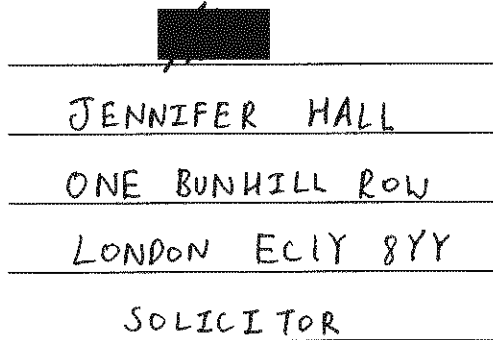 JENNIFER HALL
ONE BUNHILL ROW
LONDON EC1Y 8YY
SOLICITOR